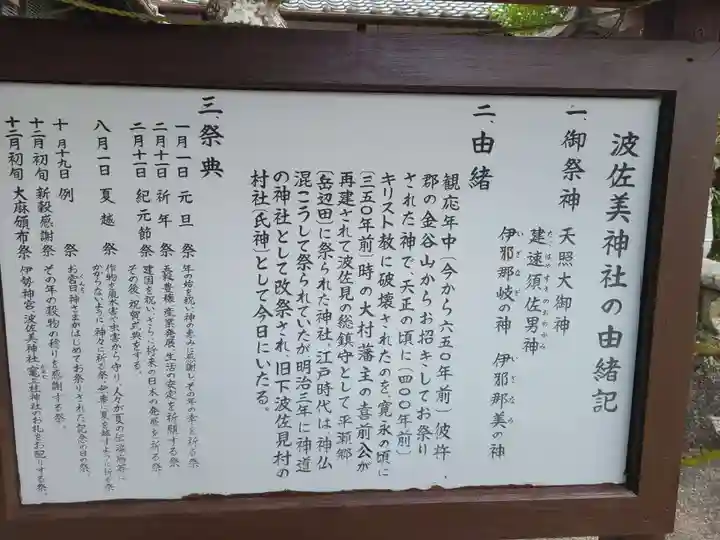 波佐美神社の由緒記
一、御祭神 天照大御神
たけはやすさのおのかみ
建速須佐男神
いざなぎ いざなみ
伊邪那岐の神 伊邪那美の神
二、由緒
観応年中(今から六五〇年前)彼杵
郡の金谷山からお招きしてお祭り
された神で、天正の頃に(四〇〇年前)
キリスト教に破壊されたのを、寛永の頃に
(三五〇年前)時の大村藩主の喜前公が
再建されて波佐見の総鎮守として平瀬郷
(岳辺田)に祭られた神社、江戸時代は神仏
混こうして祭られていたが明治三年に神道
の神社として改祭され、旧下波佐見村の
村社(氏神)として今日にいたる。
三、祭典
一月一日 元旦祭 年の始を祝い神の恵みに感謝しその年の幸を祈る祭
二月十一日 祈年祭 五穀豊穣、産業発展、生活の安定を祈願する祭
二月十一日 紀元節祭 建国を祝いさらに将来の日本の発展を祈る祭、
その後、祝賀式典をする。
八月一日 夏越祭 作物を風水害や虫害から守り、人々が夏の伝染病等に
かからないように神々に祈る祭、無事に夏を越すように祈る祭
十月十九日 例祭 お宮に神さまがはじめてお祭りされた記念の日の祭、
十二月初旬 新穀感謝祭 その年の穀物の稔りを感謝する祭、
十二月初旬 大麻頒布祭 伊勢神宮、波佐美神社、竃三柱神社のお札をお配りする祭、